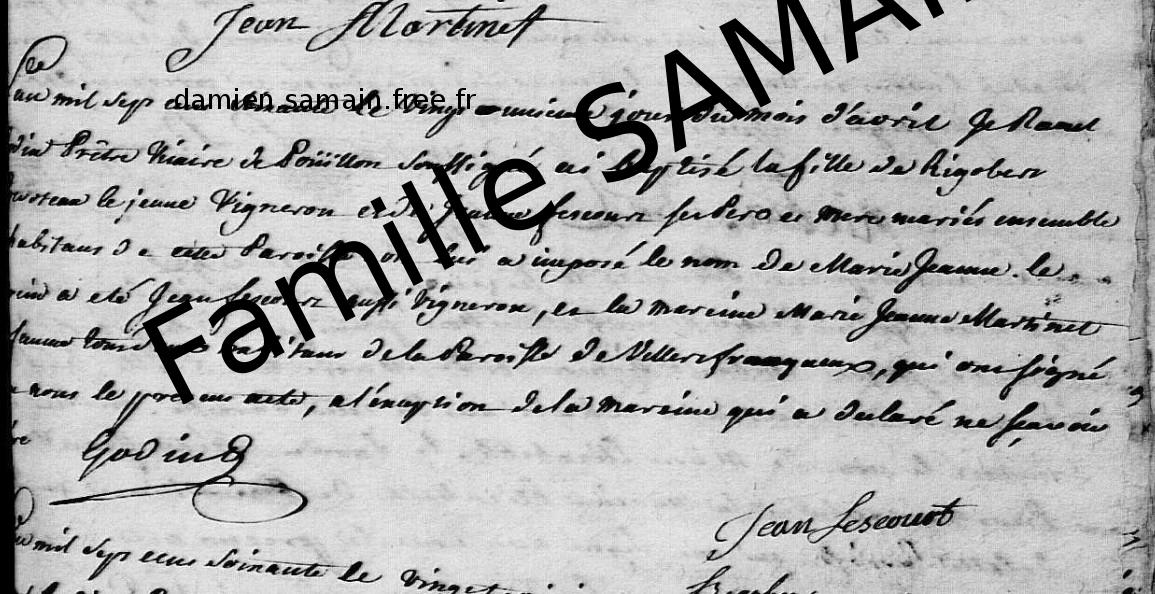 Jean Martinet
L'an mil sept cent soixante le vingt onzieme jour du mois d'avril Je
damien.samain.free.fr
Famille SAMAIN
Prêtre Vicaire de Poüillon soussigné ai baptisé la fille de Rigobert
le jeune Vigneron et de Jeanne Lescourt ses Pere et Mere mariés ensemble
habitans de cette Paroisse on lui a imposé le nom de Marie Jeanne. le
a eté Jean Lescourt aussi Vigneron, et la mareine Marie Jeanne Martinet
tous habitans de la Paroisse de Villersfranqueux, qui ont signé
nous le present acte, a l'éxception de la mareine qui a declaré ne sçavoir
Godin
Jean Lescouot
mil sept cent soixante le vingt